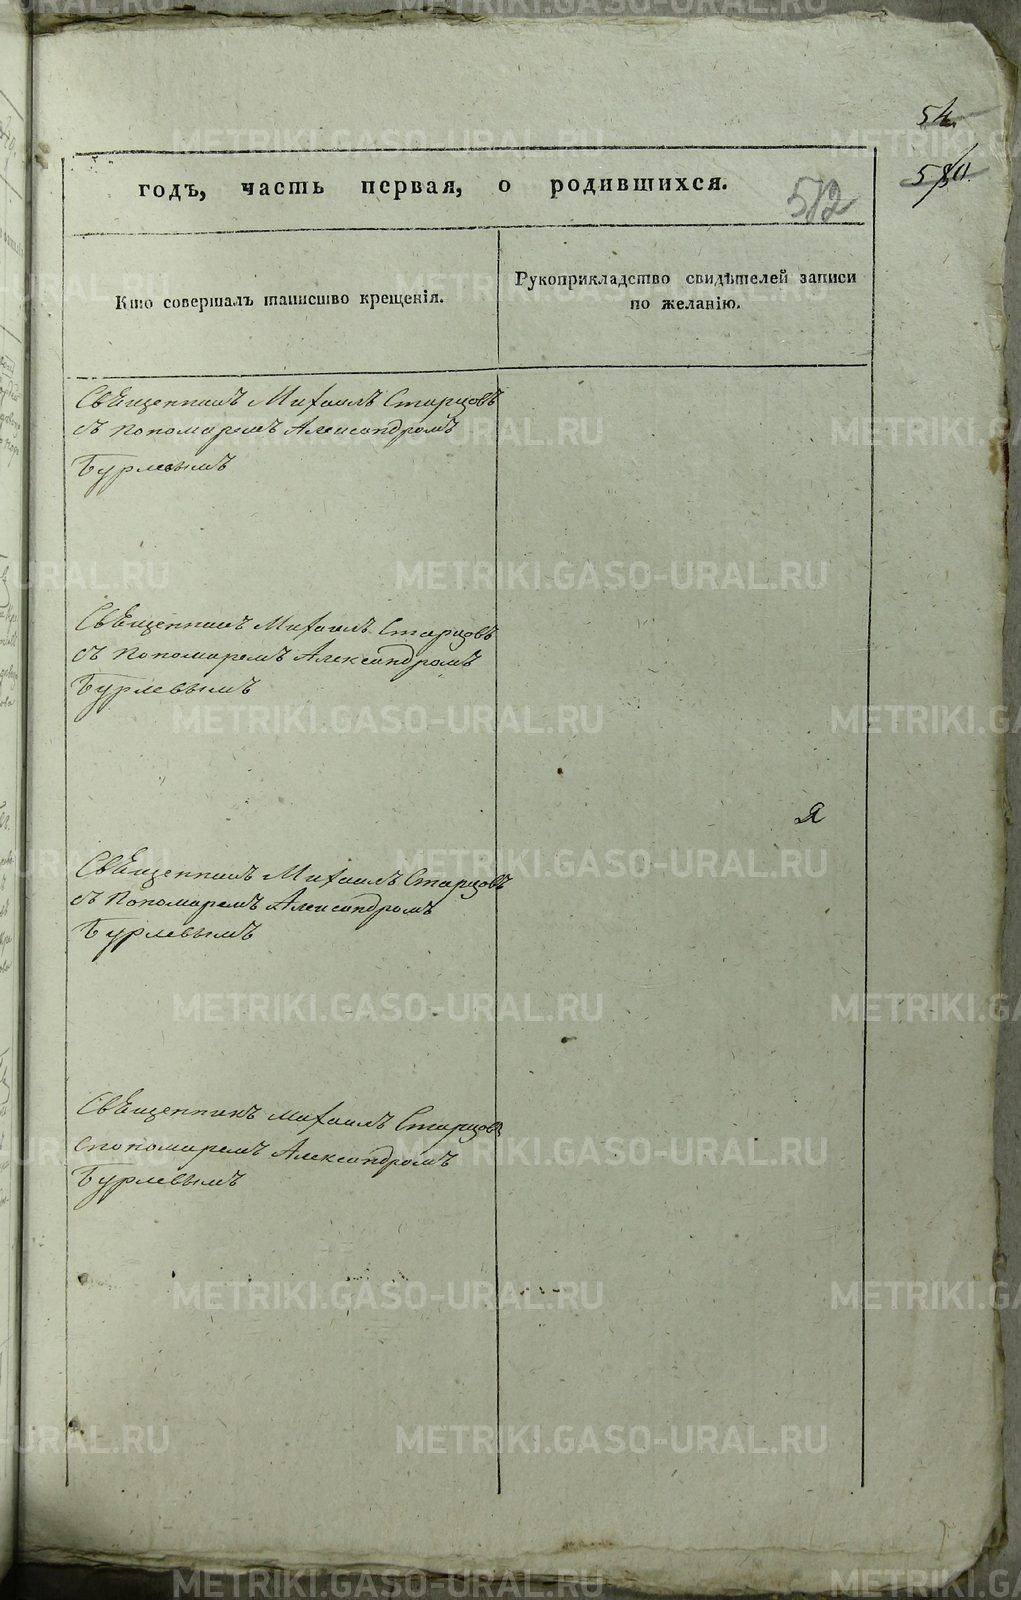 54.
580.
годъ, часть первая, о родившихся.
512
Кто совершалъ таинство крещенія.
Рукоприкладство свидѣтелей записи
по желанію.
Священникъ Михаилъ Старцовъ
съ Пономаремъ Александромъ
Бурлевымъ
Священникъ Михаилъ Старцовъ
съ Пономаремъ Александромъ
Бурлевымъ
Я
Священникъ Михаилъ Старцовъ
съ Пономаремъ Александромъ
Бурлевымъ
Священникъ Михаилъ Старцовъ
спономаремъ Александромъ
Бурлевымъ
METRIKI.GASO-URAL.RU